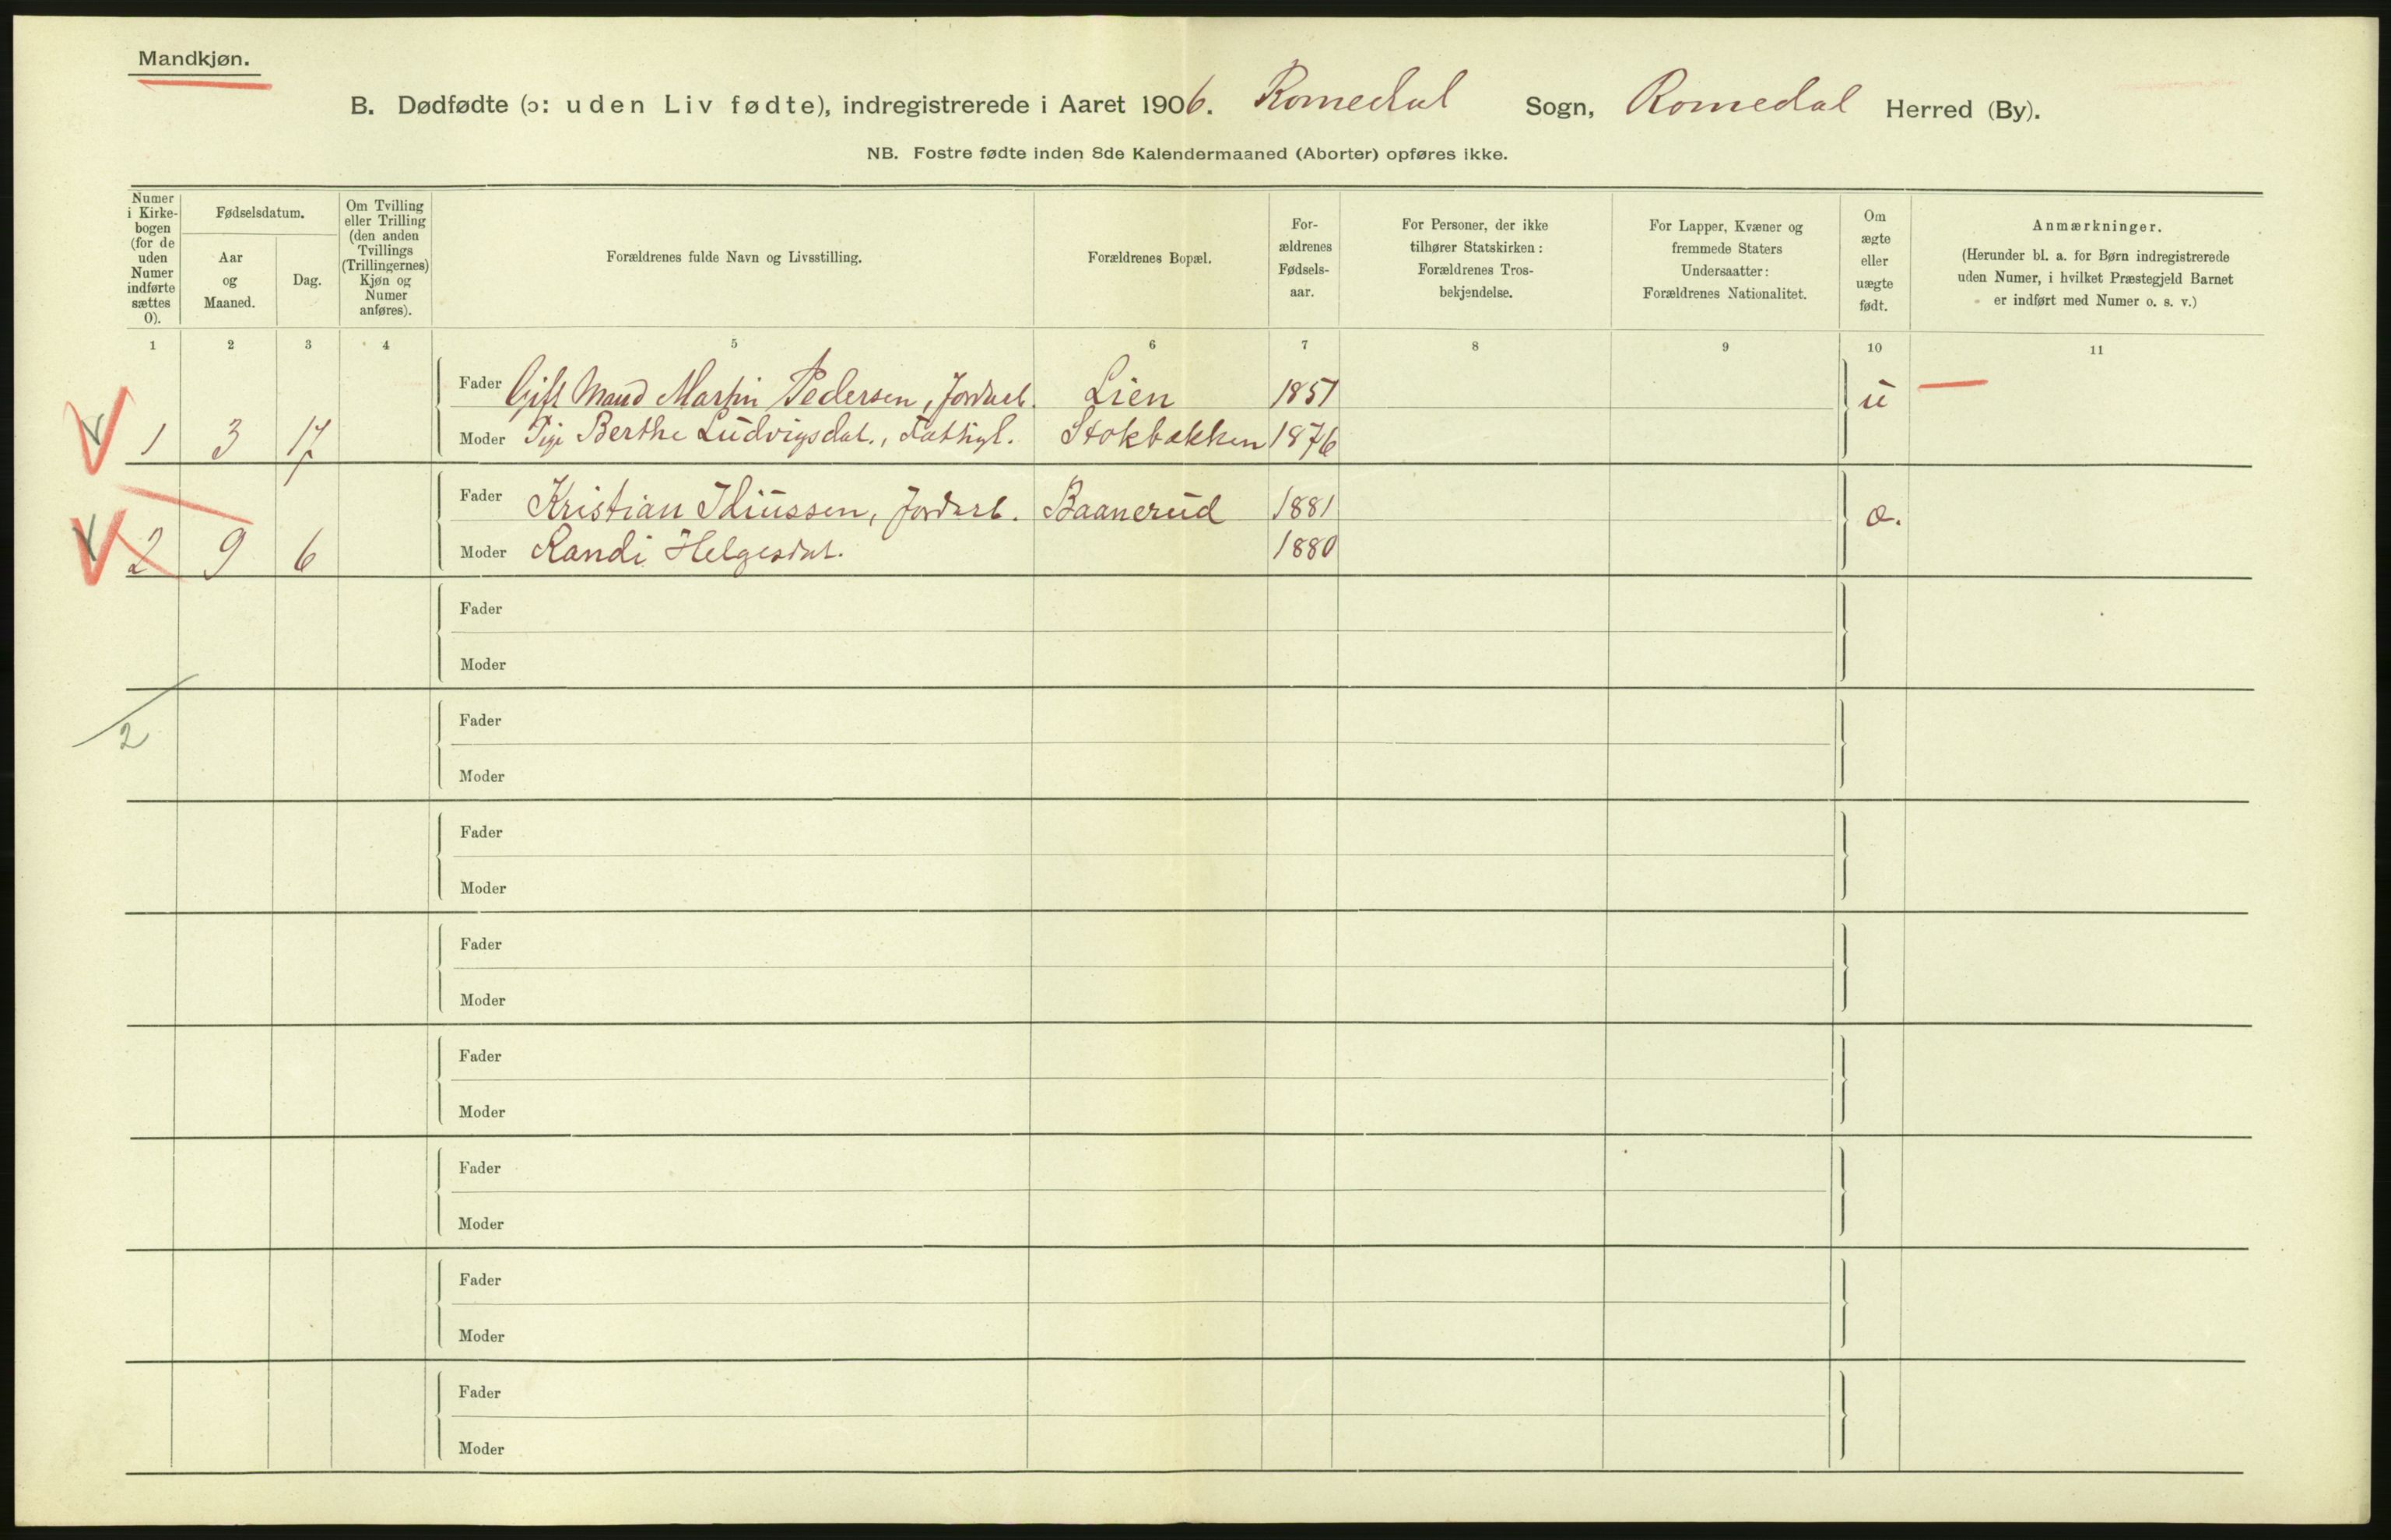 Mandkjøn.
B. Dødfødte (ɔ: uden Liv fødte), indregistrerede i Aaret 1906. Romedal Sogn, Romedal Herred (By).
NB. Fostre fødte inden 8de Kalendermaaned (Aborter) opføres ikke.
Numer
i Kirke-
bogen
(for de
uden
Numer
indførte
sættes
0).
Fødselsdatum.
Aar
og
Maaned.
Dag.
Om Tvilling
eller Trilling
(den anden
Tvillings
(Trillingernes)
Kjøn og
Numer
anføres).
Forældrenes fulde Navn og Livsstilling.
Forældrenes Bopæl.
For-
ældrenes
Fødsels-
aar.
For Personer, der ikke
tilhører Statskirken:
Forældrenes Tros-
bekjendelse.
For Lapper, Kvæner og
fremmede Staters
Undersaatter:
Forældrenes Nationalitet.
Om
ægte
eller
uægte
født.
Anmærkninger.
(Herunder bl. a. for Børn indregistrerede
uden Numer, i hvilket Præstegjeld Barnet
er indført med Numer o. s. v.)
1 2 3 4 5 6 7 8 9 10 11
Fader Gift Mand Martin Pedersen, Jordarb. Lien 1851 u
1 3 17 Moder Pige Berthe Ludvigsdat., Stokbakken 1876
Fader Kristian Jordarb. Baanerud 1881 æ.
2 9 6 Moder Randi Helgesdat. 1880
Fader
Moder
2
Fader
Moder
Fader
Moder
Fader
Moder
Fader
Moder
Fader
Moder
Fader
Moder
Fader
Moder